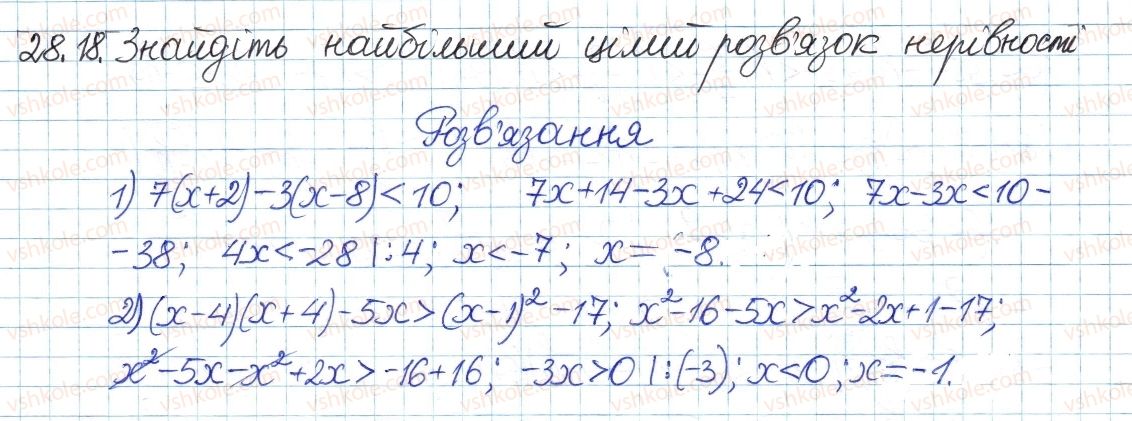 28.18. Знайдіть найбільший цілий розв'язок нерівності
Розв'язання
1) 7(x+2)-3(x-8)<10; 7x+14-3x+24<10; 7x-3x<10-
-38; 4x<-28 |:4; x<-7; x=-8.
2) (x-4)(x+4)-5x>(x-1)²-17; x²-16-5x>x²-2x+1-17;
x²-5x-x²+2x>-16+16; -3x>0 |:(-3); x<0; x=-1.